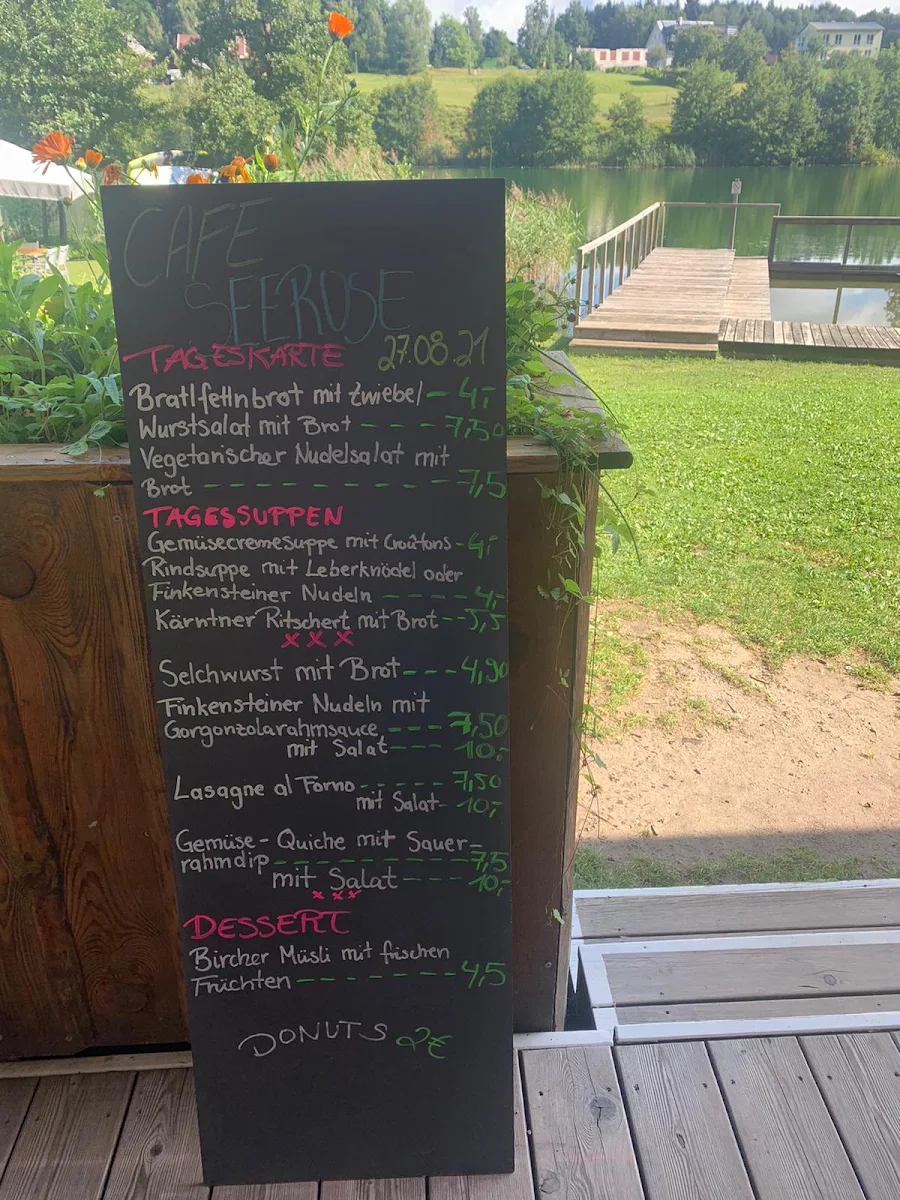 CAFE
SEEROSE
TAGESKARTE 27.08.21
Bratlfettnbrot mit Zwiebel - 4,-
Wurstsalat mit Brot - - - - 7,50
Vegetarischer Nudelsalat mit
Brot - - - - - - - - - - - - - 7,5
TAGESSUPPEN
Gemüsecremesuppe mit Croûtons - 4,-
Rindsuppe mit Leberknödel oder
Finkensteiner Nudeln - - - - - 4,-
Kärntner Ritschert mit Brot - - 5,5
x x x
Selchwurst mit Brot - - - 4,90
Finkensteiner Nudeln mit
Gorgonzolarahmsauce - - - - 7,50
mit Salat - - - 10,-
Lasagne al Forno - - - - - 7,50
mit Salat - 10,-
Gemüse - Quiche mit Sauer=
rahmdip - - - - - - - - - - - 7,5
mit Salat - - - - 10,-
x x x
DESSERT
Bircher Müsli mit frischen
Früchten - - - - - - - - 4,5
DONUTS 2€